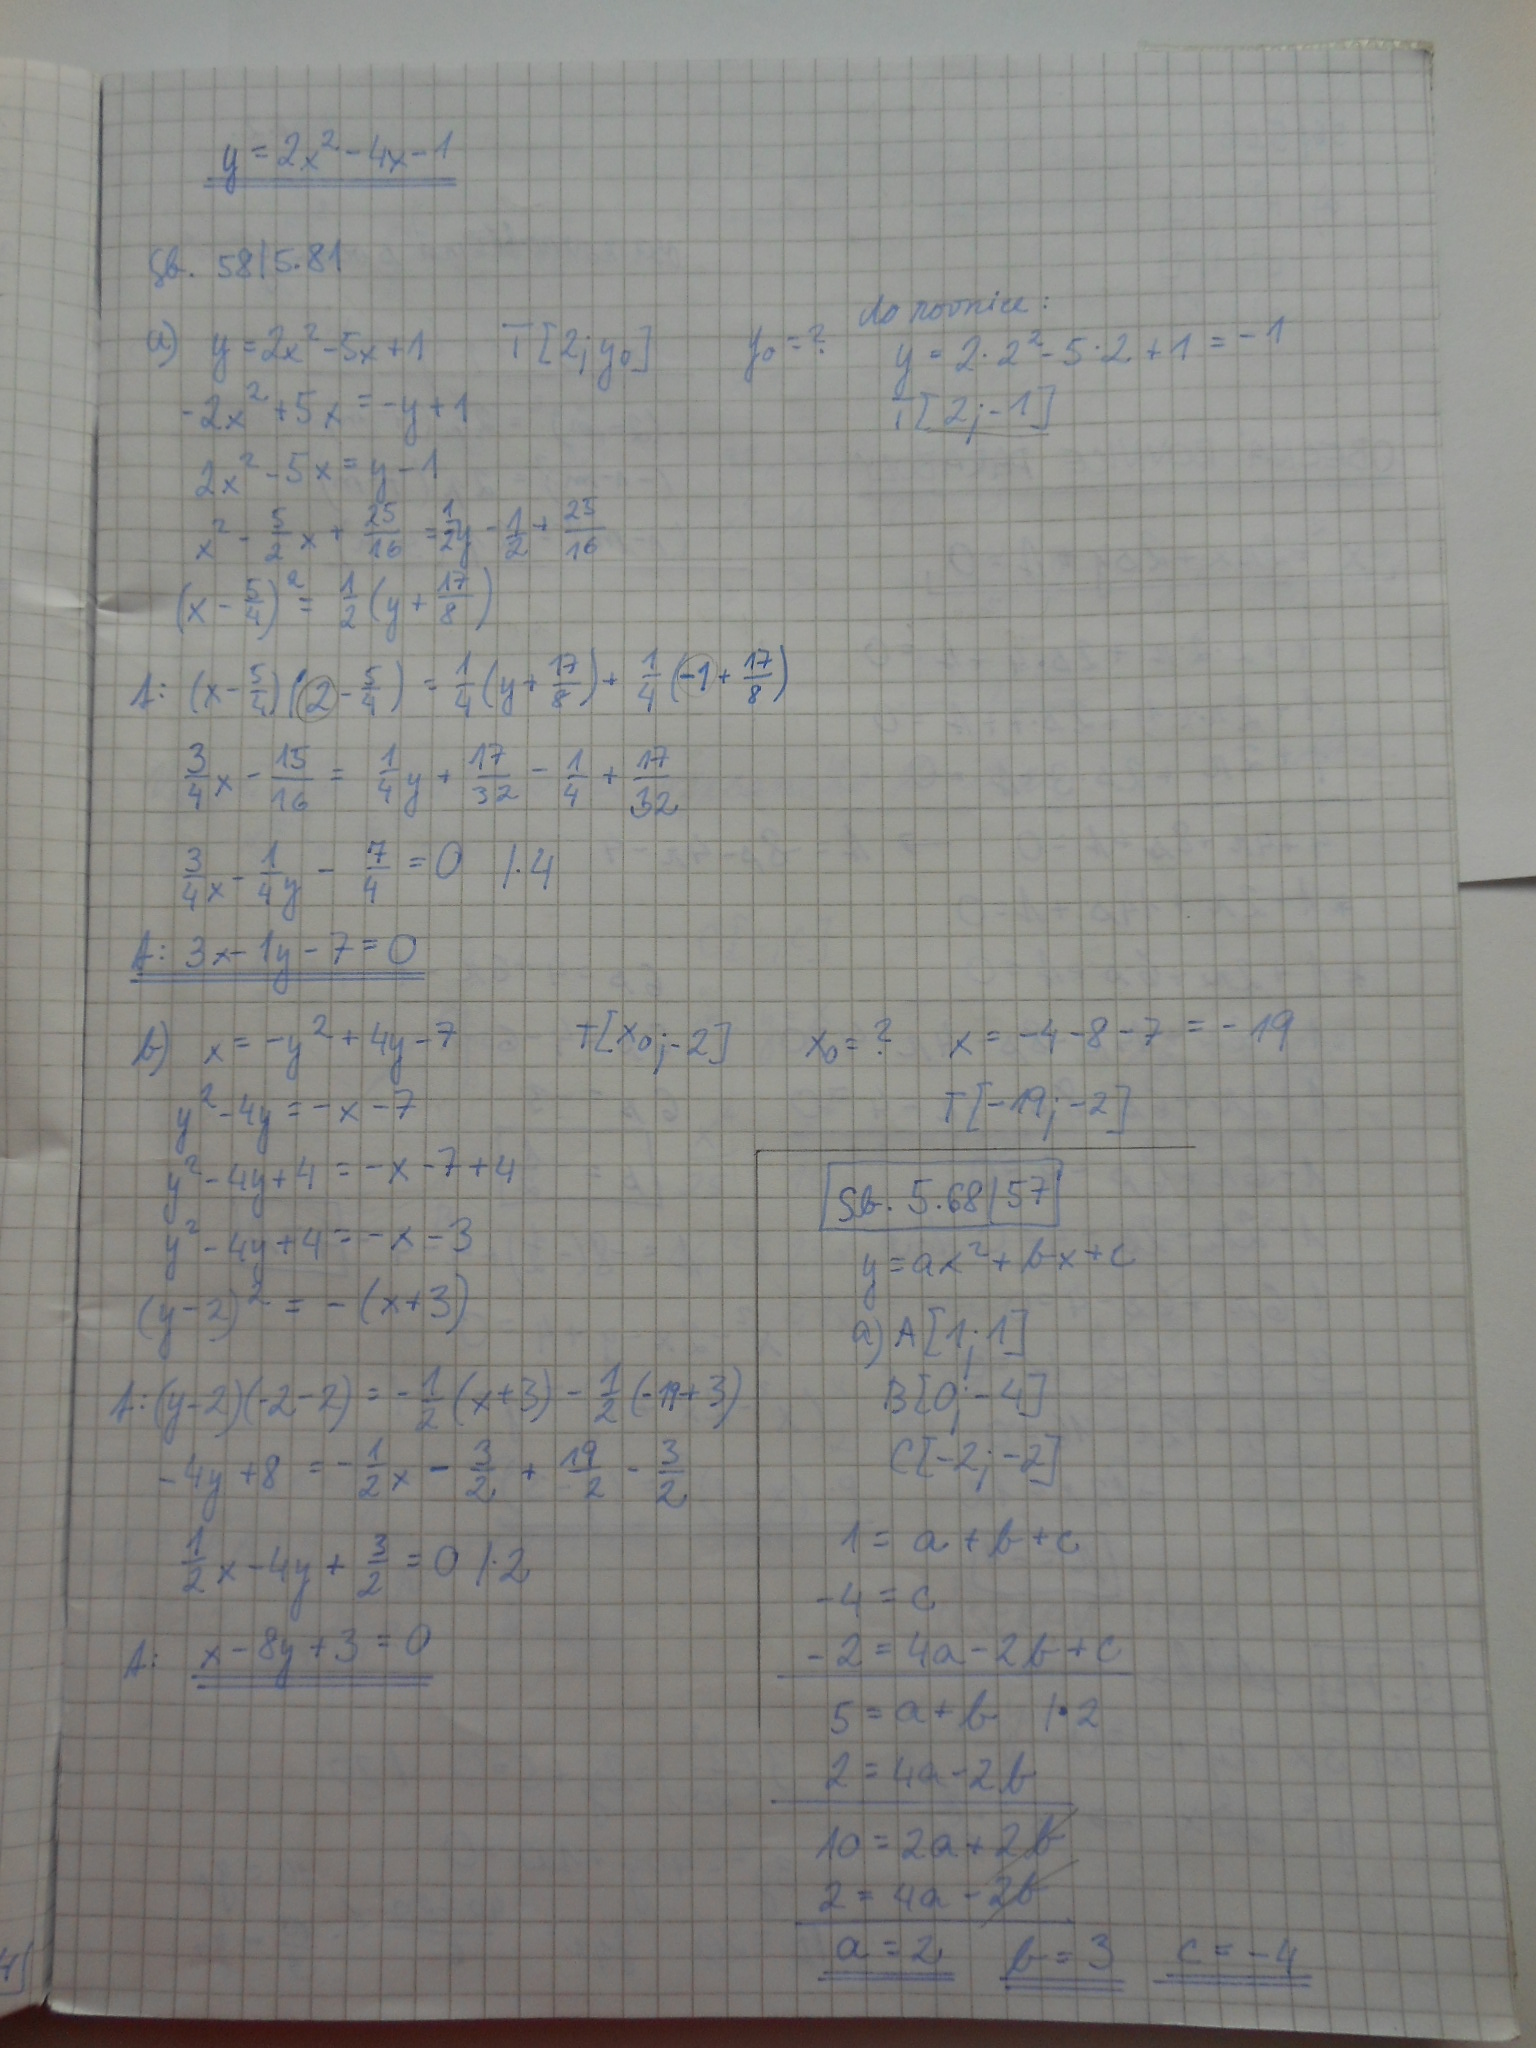 y = 2x² - 4x - 1
Sb. 58/5.81
a) y = 2x² - 5x + 1 T[2; y₀] y₀ = ? do rovnice:
y = 2·2² - 5·2 + 1 = -1
T[2; -1]
-2x² + 5x = -y + 1
2x² - 5x = y - 1
x² - 5/2 x + 25/16 = 1/2 y - 1/2 + 25/16
(x - 5/4)² = 1/2 (y + 17/8)
t: (x - 5/4)(2 - 5/4) = 1/4 (y + 17/8) + 1/4 (-1 + 17/8)
3/4 x - 15/16 = 1/4 y + 17/32 - 1/4 + 17/32
3/4 x - 1/4 y - 7/4 = 0 /·4
t: 3x - 1y - 7 = 0
b) x = -y² + 4y - 7 T[x₀; -2] x₀ = ? x = -4 - 8 - 7 = -19
T[-19; -2]
y² - 4y = -x - 7
y² - 4y + 4 = -x - 7 + 4
y² - 4y + 4 = -x - 3
(y - 2)² = -(x + 3)
t: (y - 2)(-2 - 2) = -1/2 (x + 3) - 1/2 (-19 + 3)
-4y + 8 = -1/2 x - 3/2 + 19/2 - 3/2
1/2 x - 4y + 3/2 = 0 /·2
t: x - 8y + 3 = 0
Sb. 5.68/57
y = ax² + bx + c
a) A[1; 1]
B[0; -4]
C[-2; -2]
1 = a + b + c
-4 = c
-2 = 4a - 2b + c
5 = a + b /·2
2 = 4a - 2b
10 = 2a + 2b
2 = 4a - 2b
a = 2 b = 3 c = -4